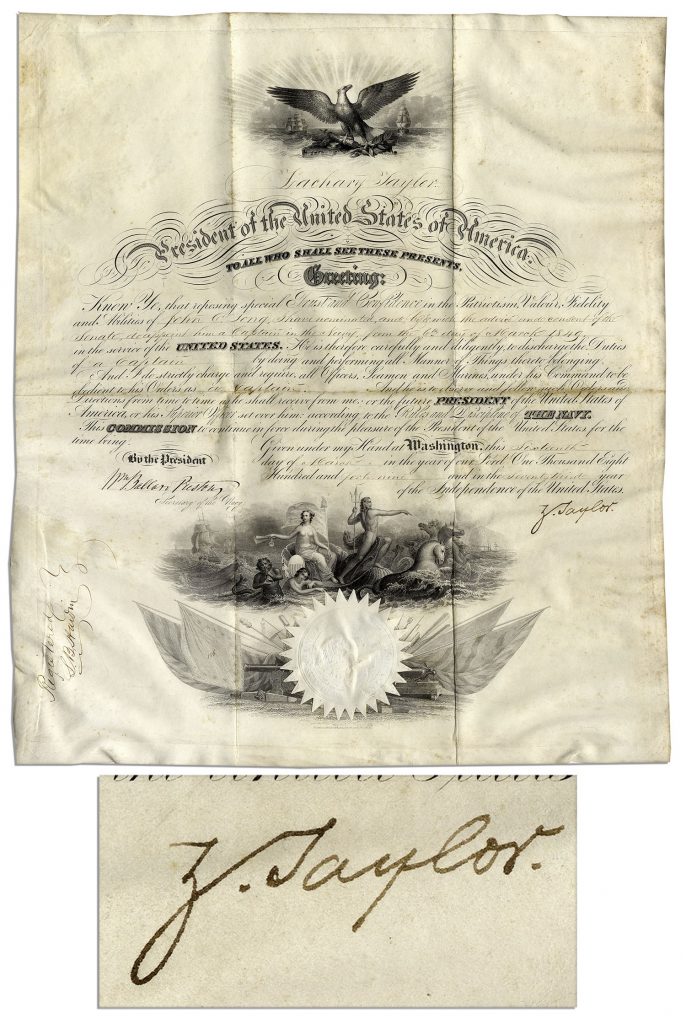 Zachary Taylor.
President of the United States of America.
TO ALL WHO SHALL SEE THESE PRESENTS,
Greeting:
Know Ye, that reposing special Trust and Confidence in the Patriotism, Valour, Fidelity
and Abilities of John C. Long, I have nominated, and by & with the advice and consent of the
Senate, do appoint him a Captain in the Navy, from the day of March 1849
in the service of the UNITED STATES. He is therefore carefully and diligently to discharge the Duties
of a Captain by doing and performing all Manner of Things thereto belonging
And I do strictly charge and require all Officers, Seamen and Marines, under his Command to be
obedient to his Orders as a Captain And he is to observe and follow such Orders and
Directions from time to time as he shall receive from me, or the future PRESIDENT of the United States of
America, or his Superior Officer set over him, according to the Rules and Discipline of THE NAVY.
This COMMISSION to continue in force during the pleasure of the President of the United States for the
time being.
Given under my Hand at Washington, this sixteenth
By the President
day of March in the year of our Lord One Thousand Eight
Hundred and forty nine and in the seventy third year
of the Independence of the United States.
Wm Ballard Preston
Secretary of the Navy
Z. Taylor.
Registered
the United States
Z. Taylor.